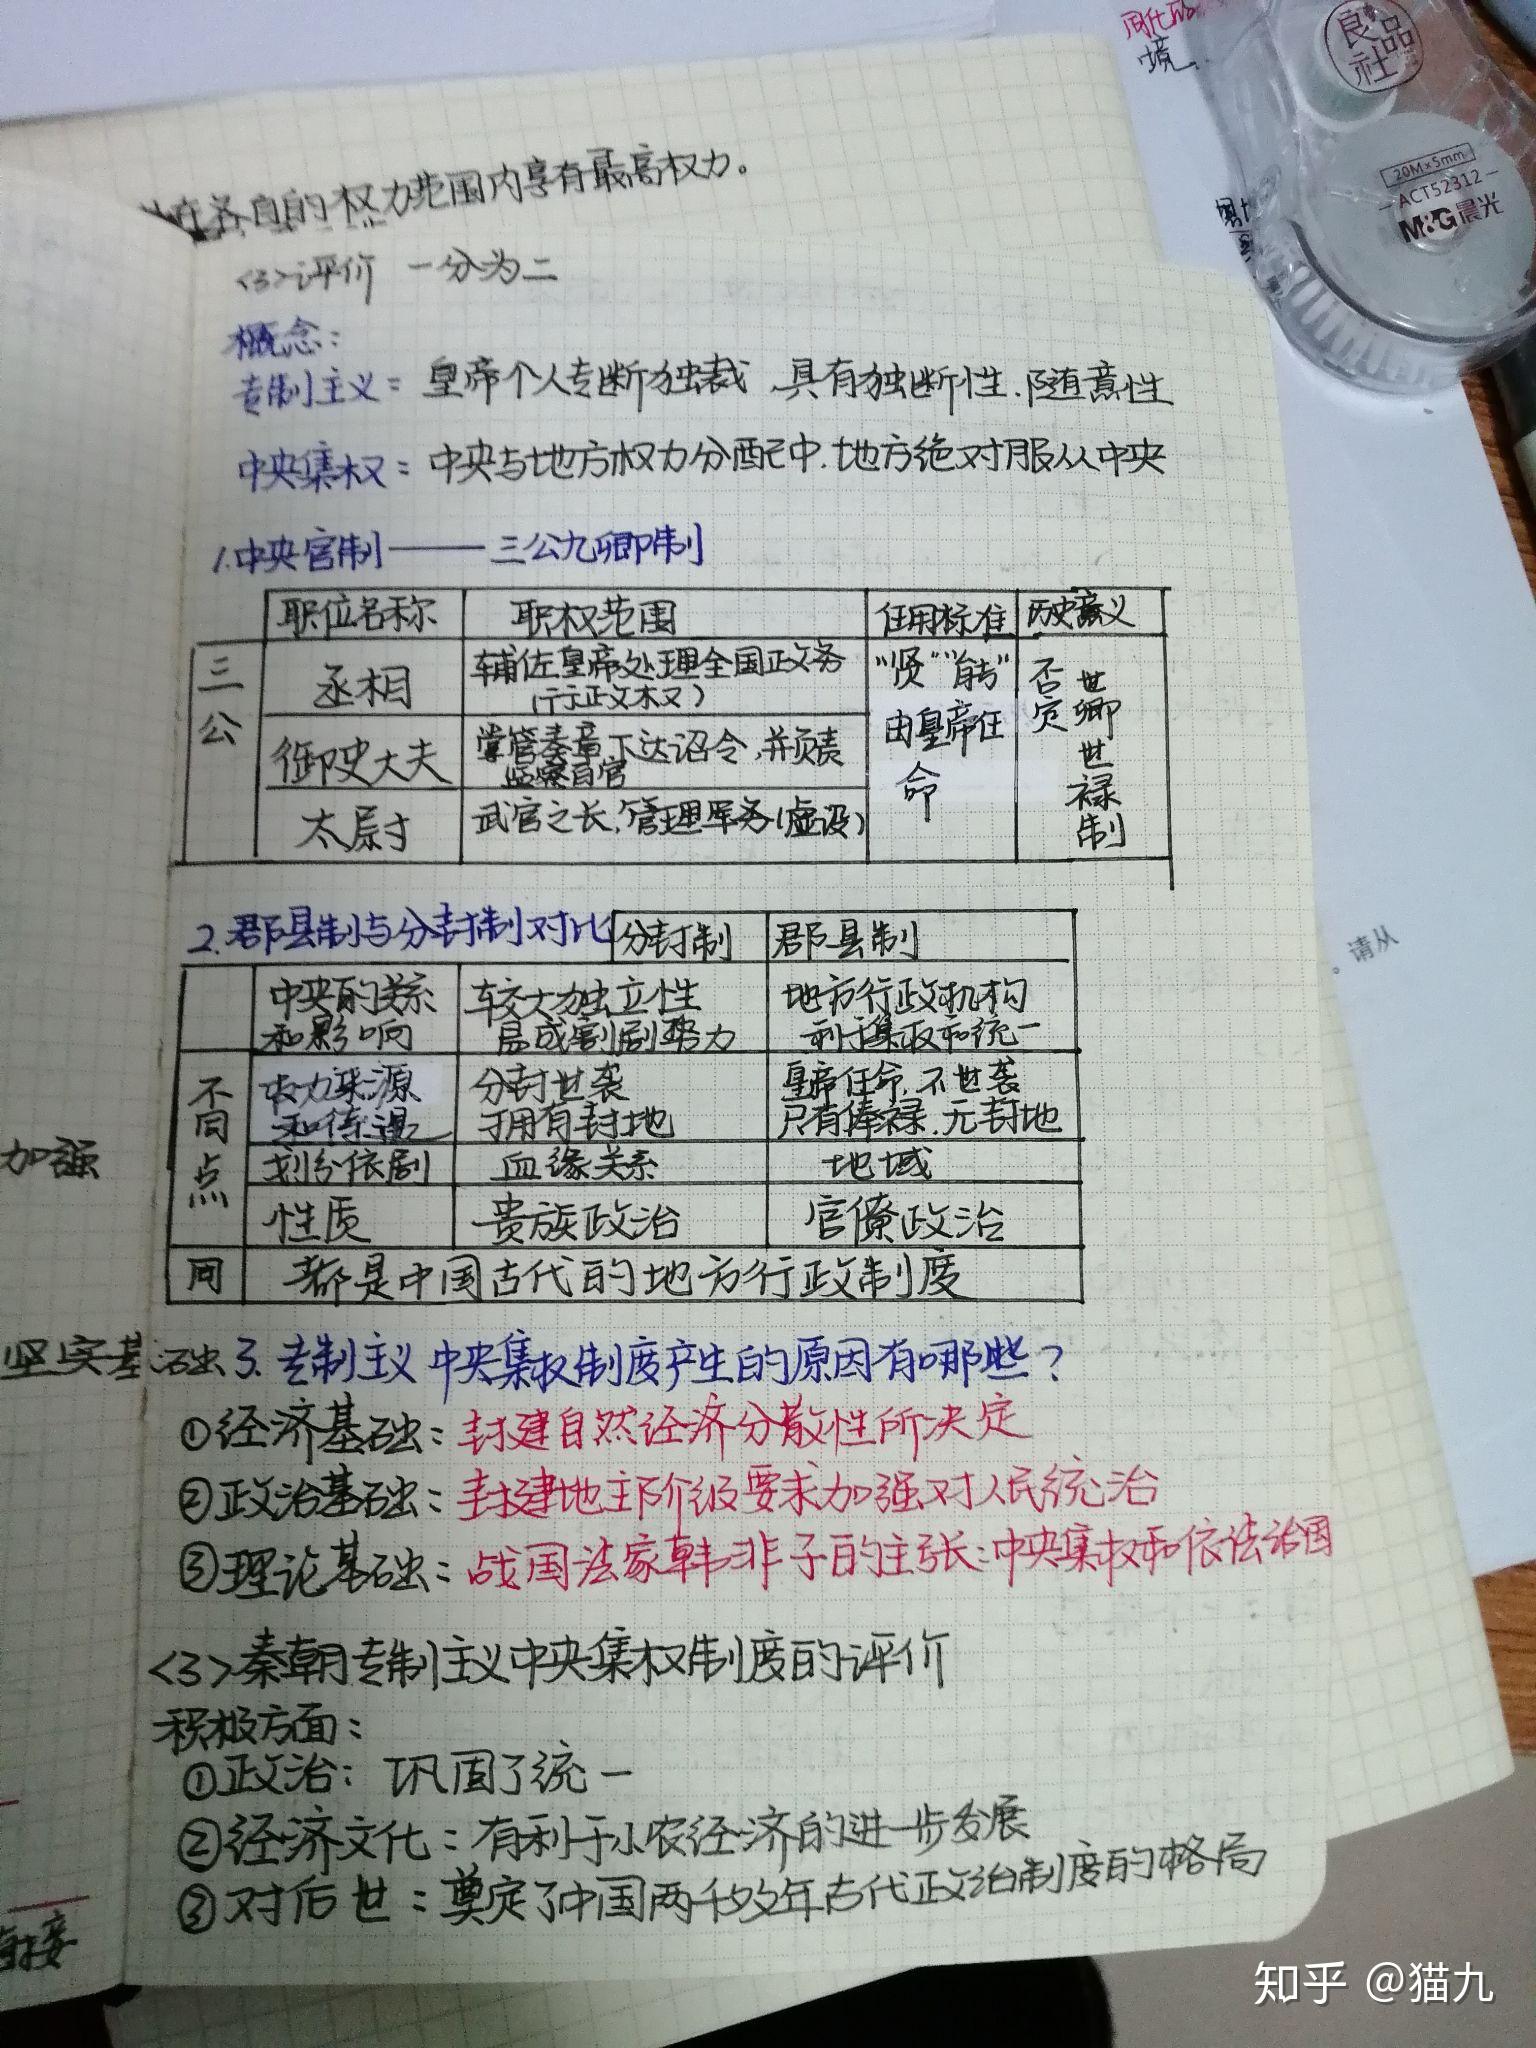 周代的
境
良品
社
20M×5mm
ACT52312
M&G晨光
在各自的权力范围内享有最高权力。
<3>评价 一分为二
概念:
专制主义=皇帝个人专断独裁,具有独断性.随意性
中央集权=中央与地方权力分配中.地方绝对服从中央
1.中央官制——三公九卿制
职位名称 职权范围 任用标准 历史意义
三公 丞相 辅佐皇帝处理全国政务(行政权) "贤""能"由皇帝任命 否定世卿世禄制
御史大夫 掌管奏章,下达诏令,并负责监察百官
太尉 武官之长,管理军务(虚设)
2.郡县制与分封制对比 分封制 郡县制
中央的关系和影响 较大独立性 易成割剧势力 地方行政机构 利于集权和统一
不同点 权力来源和待遇 分封世袭 拥有封地 皇帝任命,不世袭 只有俸禄.无封地
划分依剧 血缘关系 地域
性质 贵族政治 官僚政治
同 都是中国古代的地方行政制度
加强
坚实基础
3.专制主义中央集权制度产生的原因有哪些?
①经济基础:封建自然经济分散性所决定
②政治基础:封建地主阶级要求加强对人民统治
③理论基础:战国法家韩非子的主张:中央集权和依法治国
<3>秦朝专制主义中央集权制度的评价
积极方面:
①政治:巩固了统一
②经济文化:有利于小农经济的进一步发展
③对后世:奠定了中国两千多年古代政治制度的格局
接
。请从
知乎 @猫九